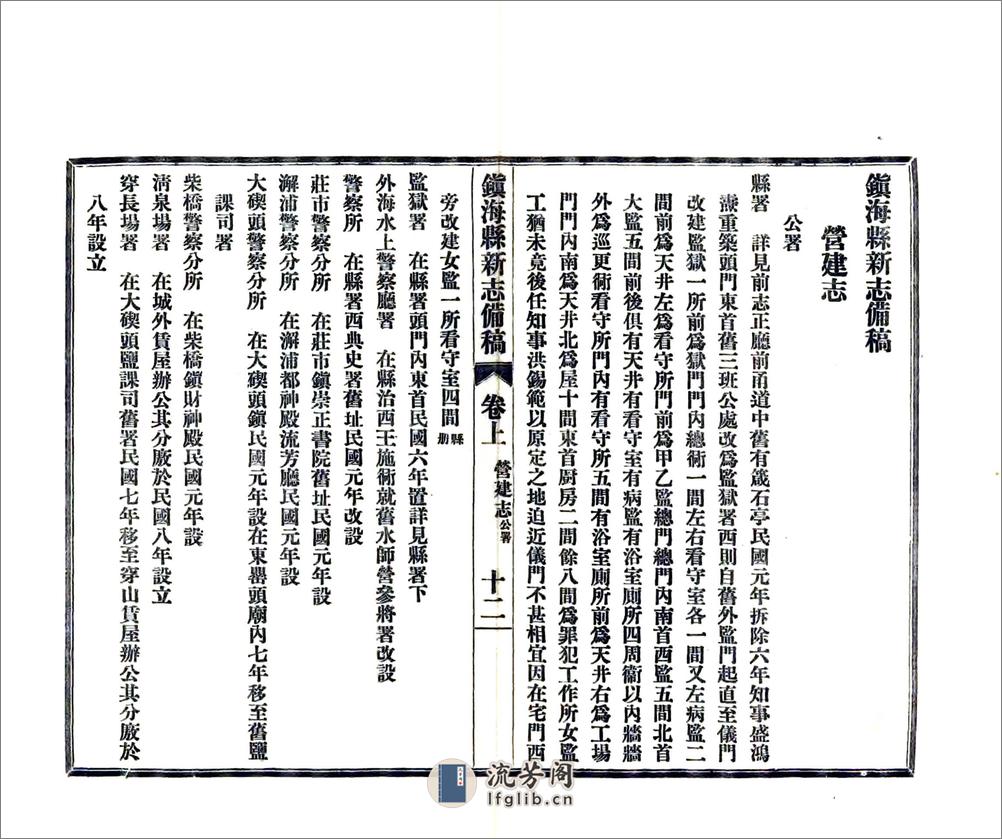 鎭海縣新志備稿
營建志
公署
縣署　詳見前志正廳前甬道中舊有箴石亭民國元年拆除六年知事盛鴻
燾重築頭門東首舊三班公處改爲監獄署西則自舊外監門起直至儀門
改建監獄一所前爲獄門門內總術一間左右看守室各一間又左病監二
間前爲天井左爲看守所門前爲甲乙監總門總門內南首西監五間北首
大監五間前後俱有天井有看守室有病監有浴室廁所四周衞以內牆牆
外爲巡更術看守所門內有看守所五間有浴室廁所前爲天井右爲工場
門門內南爲天井北爲屋十間東首厨房二間餘八間爲罪犯工作所女監
工猶未竟後任知事洪錫範以原定之地迫近儀門不甚相宜因在宅門西
鎭海縣新志備稿　卷上　營建志　公署　十二
旁改建女監一所看守室四間　縣册
監獄署　在縣署頭門內東首民國六年置詳見縣署下
外海水上警察廳署　在縣治西王施術就舊水師營參將署改設
警察所　在縣署西典史署舊址民國元年改設
莊市警察分所　在莊市鎭崇正書院舊址民國元年設
澥浦警察分所　在澥浦都神殿流芳廳民國元年設
大碶頭警察分所　在大碶頭鎭民國元年設在東嶴頭廟內七年移至舊鹽
課司署
柴橋警察分所　在柴橋鎭財神殿民國元年設
淸泉場署　在城外賃屋辦公其分廒於民國八年設立
穿長場署　在大碶頭鹽課司舊署民國七年移至穿山賃屋辦公其分廒於
八年設立
流芳阁
lfglib.cn